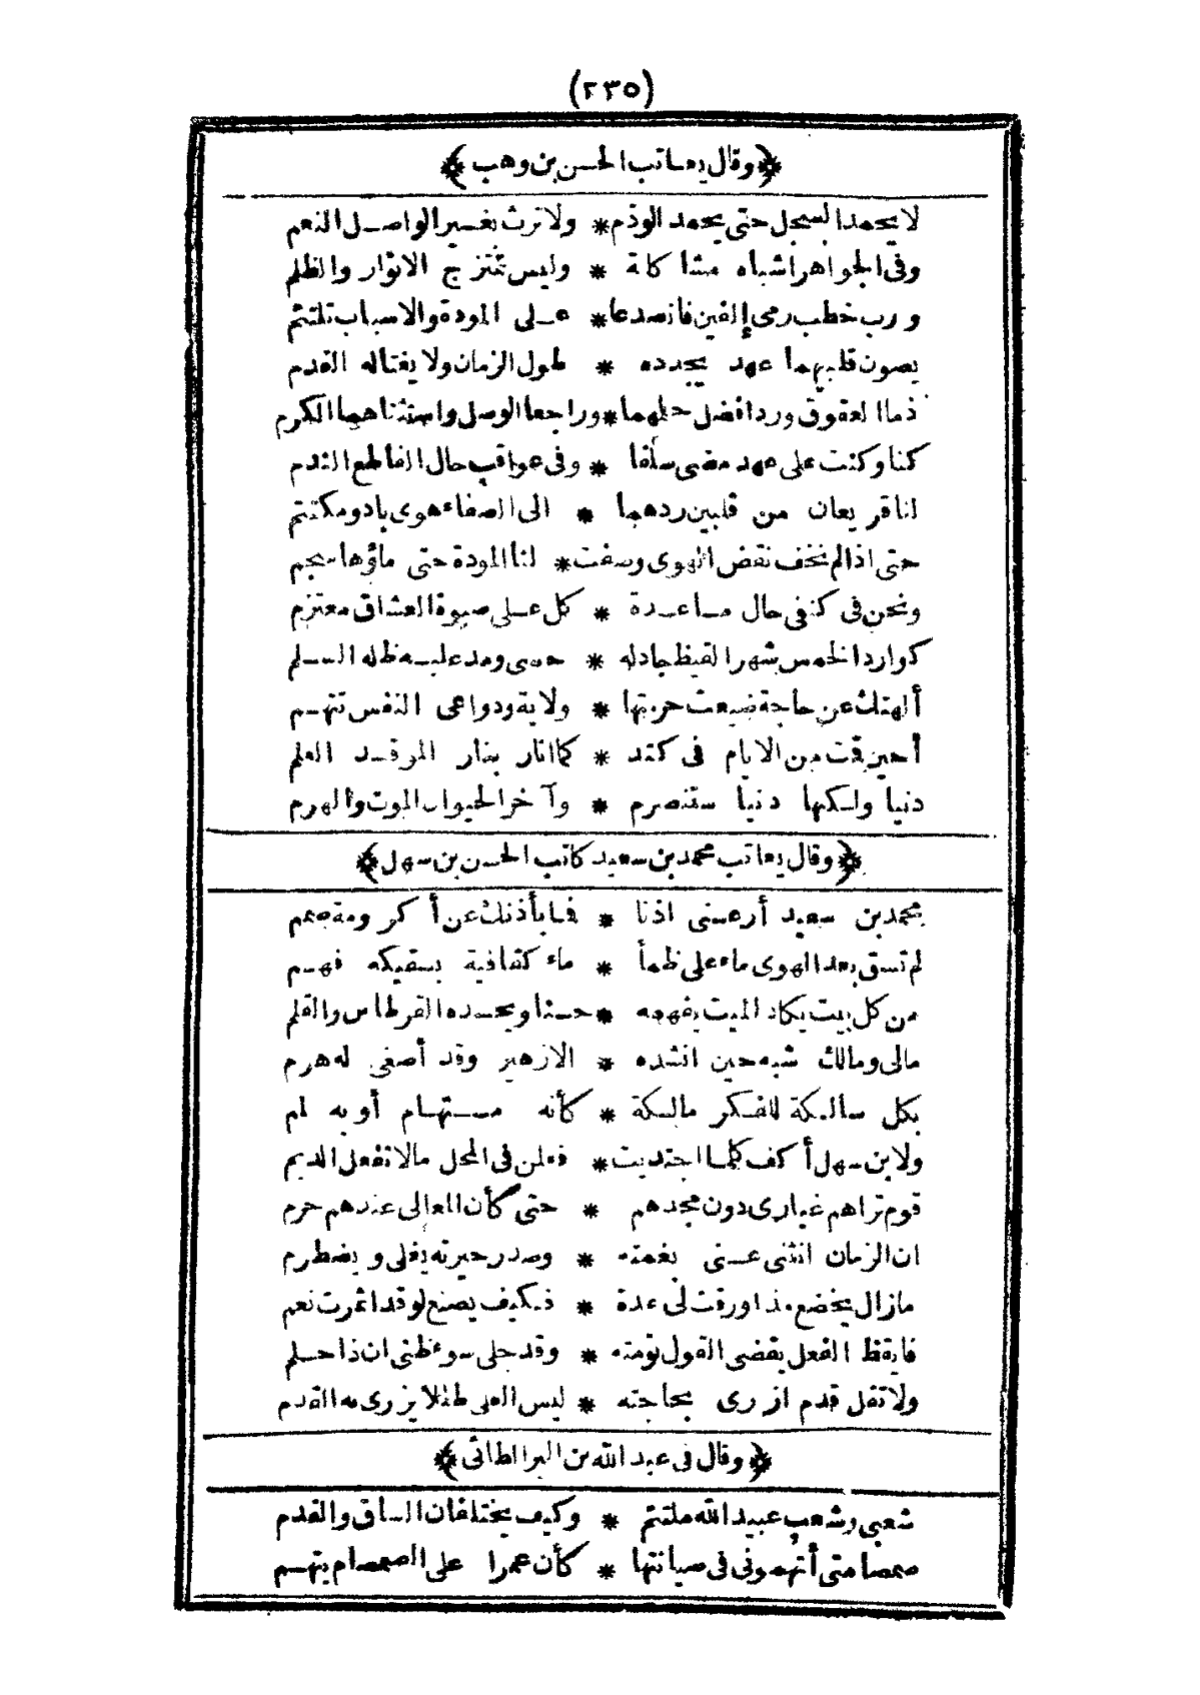 (٢٣٥)
﴿وقال يعاتب الحسن بن وهب﴾
لا يحمد السجل حتى يحمد الوذم * ولا ترث بغير الواصل النعم
وفي الجواهر أشباه مشاكلة * وليس تمتزج الانوار والظلم
ورب خطب رمى إلفين فانصدعا * على المودة والاسباب تلتئم
يصون قلبيهما عهد يجدده * طول الزمان ولا يغتاله القدم
ذما العقوق وردا فضل حلمهما * وراجعا الوصل واستثناهما الكرم
كنا وكنت على عهد مضى سلفا * وفي عواقب حال القاطع الندم
لنا قريعان من قلبين ردهما * الى الصفاء هوى باد ومكتتم
حتى اذا لم نخف نقض الهوى وسفت * لنا المودة حتى ماؤها سجم
ونحن في كنفي حال مساعدة * كل على صبوة العشاق معتزم
كوارد الخمس شهر القيظ جادله * حسى ومد عليه ظله السلم
ألهتك عن حاجة ضيعت حرمتها * ولاية ودواعى النفس تتهم
أحين قت من الايام في كتد * كما انار بنار الموقد العلم
دنيا ولكنها دنيا ستنصرم * وآخر الحيوان الموت والهرم
﴿وقال يعاتب محمد بن سعيد كاتب الحسن بن سهل﴾
محمد بن سعيد أرعنى اذنا * فما بأذنك عن أكرومة صمم
لم تسق بعد الهوى ماء على ظمأ * ماء كقافية يسقيكه فهم
من كل بيت يكاد الميت يفهمه * حسنا ويحسده القرطاس والقلم
مالى ومالك شبه حين انشده * الا زهير وقد أصغى له هرم
بكل سالكة للفكر مالكة * كأنه مستهام أو به لم
ولابن سهل أكف كلما اجتديت * فعلن في المحل مالا تفعل الديم
قوم تراهم غيارى دون مجدهم * حتى كأن المعالى عندهم حرم
ان الزمان انثنى عنى بغمته * وصدر حيرته يغلى ويضطرم
مازال يخضع مذ اورقت لى عدة * فكيف يصنع لو قد اثمرت نعم
فايقظ الفعل يقضى القول نومته * وقد جلى سوء ظنى ان ذا حلم
ولا تقل قدم ازرى بحاجته * ليس العلى طللا يزرى به القدم
﴿وقال في عبد الله بن البرا الطائى﴾
شعبى وشعب عبيد الله ملتئم * وكيف يختلفان الساق والقدم
صمصامتى أتهمونى في صيانتها * كأن عمرا على الصمصام يتهم